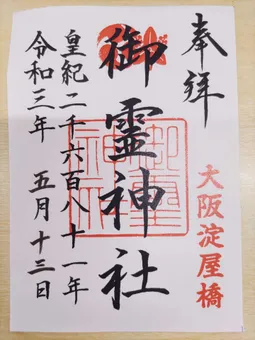 奉拜
大阪淀屋橋
御霊神社
皇紀二千六百八十一年
令和三年 五月十三日